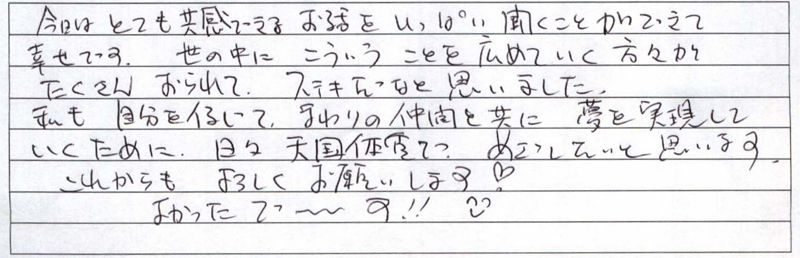 今日は とても 共感できる お話を いっぱい 聞くこと ができて
幸せです。 世の中に こういう ことを 広めていく 方々が
たくさん おられて、 ステキだなと 思いました。
私も 自分を信じて、まわりの仲間と共に 夢を実現して
いくために、 日々 天国体質で めざしたいと 思います。
これからも よろしく お願いします♡
よかったで〜〜す!!